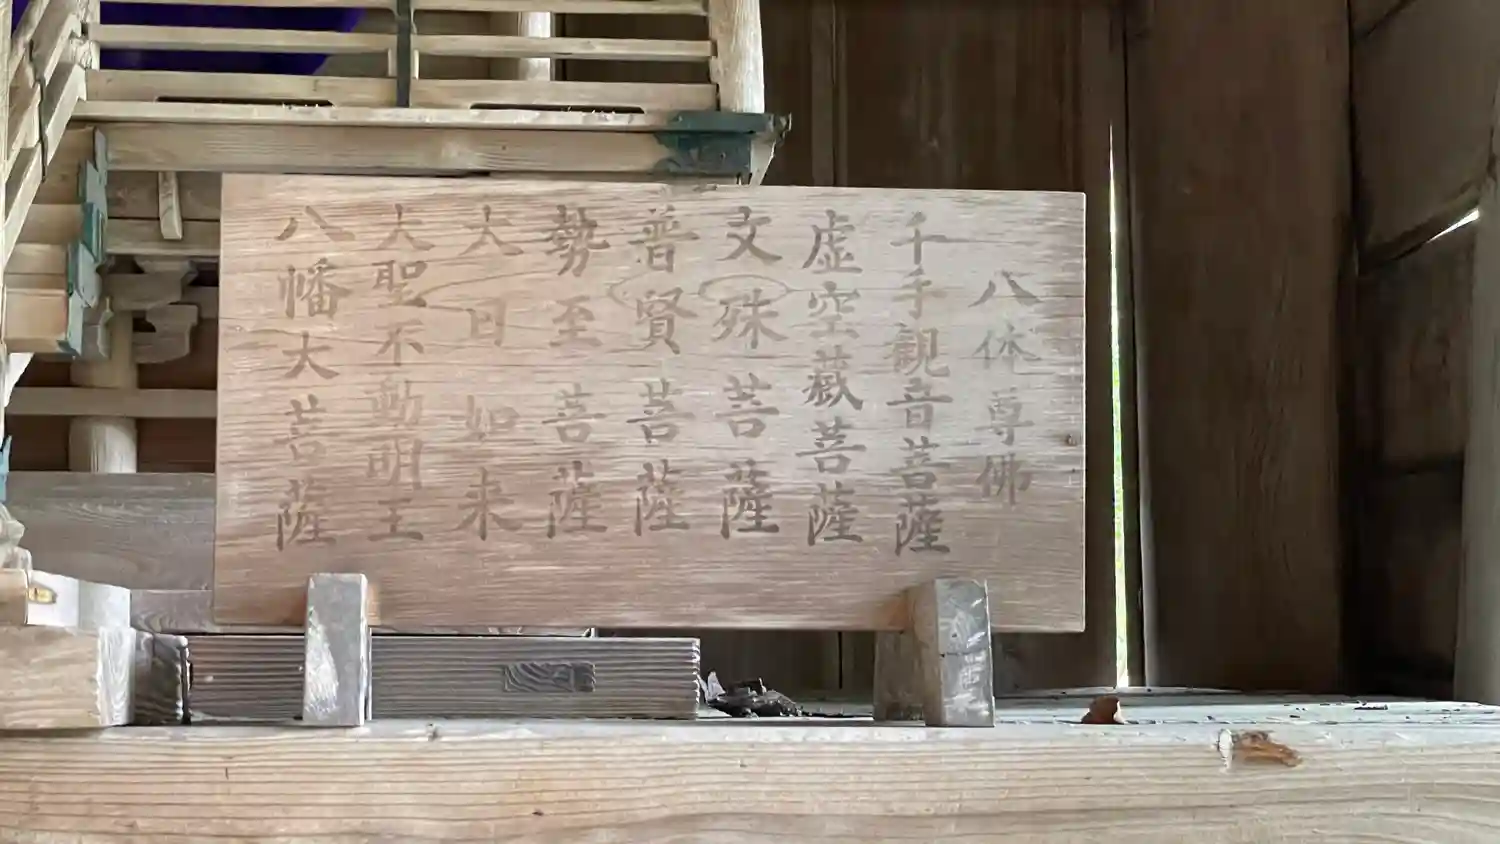 八体尊佛
千手観音菩薩
虚空蔵菩薩
文殊菩薩
普賢菩薩
勢至菩薩
大日如来
大聖不動明王
八幡大菩薩